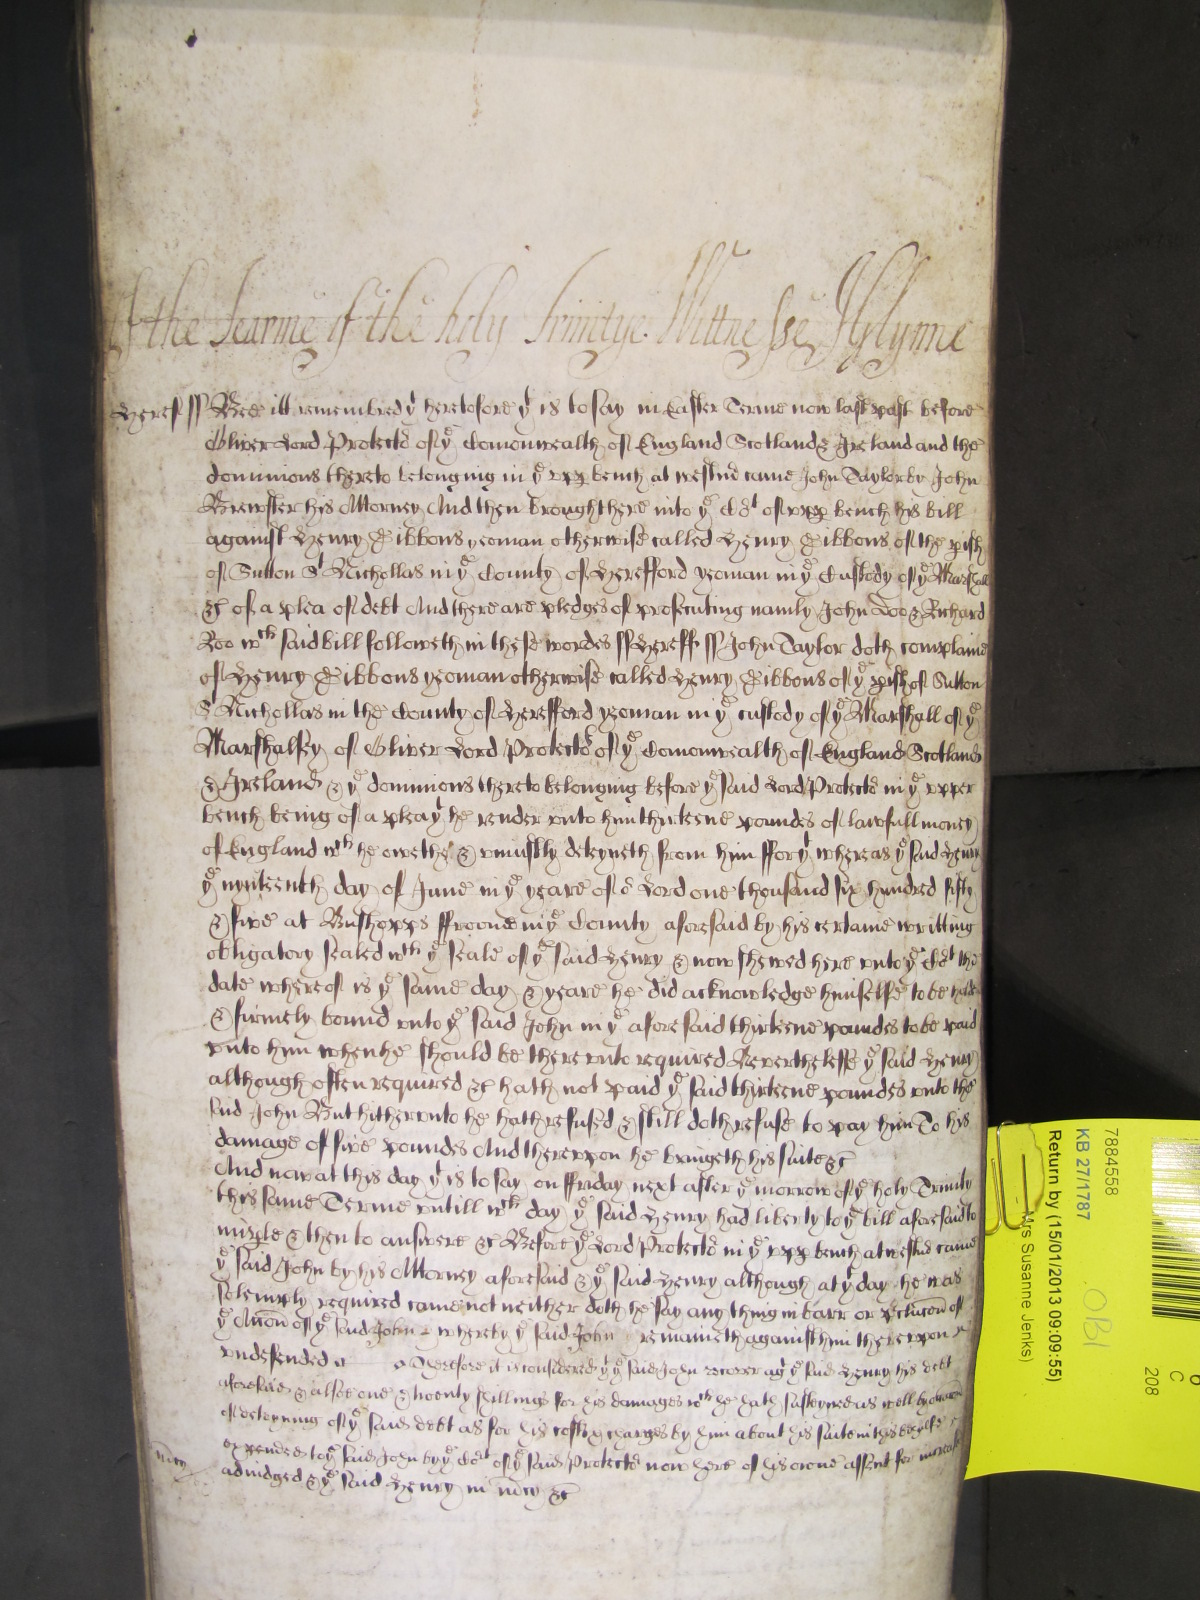 Of the Tearme of the holy Trinitye. Wittnesse Jo Glynne
Heref ss Bee itt remembred yt heretofore yt is to say in Easter Terme now last past before
Oliver Lord Protector of ye Comonwealth of England Scotland & Ireland and the
dominions thereto belonging in ye upp bench at Westmr came John Taylor by John
Brewster his Attorney And then brought here into ye Cort of upp bench his bill
against Henry Gibbons yeoman otherwise called Henry Gibbons of the pish
of Sutton St Nichollas in ye County of Herefford yeoman in ye Custody of ye Marshall
&c of a plea of debt And there are pledges of prosecuting namly John Doo & Richard
Roo wch said bill followeth in these wordes ss Hereff ss John Taylor doth complaine
of Henry Gibbons yeoman otherwise called Henry Gibbons of ye pish of Sutton
St Nichollas in the County of Herefford yeoman in ye custody of ye Marshall of ye
Marshalsey of Oliver Lord Protector of ye Comonwealth of England Scotland
& Ireland & ye dominions thereto belonging before ye said Lord Protector in ye upper
bench being of a plea yt he render unto him thirteene poundes of lawfull money
of England wch he oweth & uniustly deteyneth from him ffor yt whereas ye said Henry
ye nynteenth day of June in ye yeare of or Lord one thousand six hundred fifty
& five at Bushopps ffroome in ye County aforesaid by his certaine writting
obligatory sealed wth ye seale of ye said Henry & now shewed here unto ye Cort the
date whereof is ye same day & yeare he did acknowledge himselfe to be held
& firmely bound unto ye said John in ye aforesaid thirteene poundes to be paid
unto him when he should be thereunto required Neverthelesse ye said Henry
although often required &c hath not paid ye said thirteene poundes unto the
said John But hitherunto he hath refused & still doth refuse to pay him To his
damage of five poundes And thereupon he bringeth his suite &c
And now at this day yt is to say on ffriday next after ye morrow of ye holy Trinity
this same Terme untill wch day ye said Henry had liberty to ye bill aforesaid to
imple & then to answere &c Before ye Lord Protector in ye upp bench at Westmr came
ye said John by his Attorney aforesaid & ye said Henry although at yt day he was
solemply required came not neither doth he say any thing in barr or preclucon of
ye Accon of ye said John whereby ye said John remaineth against him thereupon
undefended Therefore it is considered yt ye said John recover agt ye said Henry his debt
aforesaid & alsoe one & twenty shillings for his damages wch he hath susteyned as well by occacon
of deteyning of ye said debt as for his costs & charges by him about his suite in this behalfe
expended to ye said John by ye Cort of ye said Protector now here of his owne assent for increase
mcy
adiudged & ye said Henry in mcy &c
7884558
KB 27/1787
Return by (15/01/2013 09:09:55)
Mrs Susanne Jenks)
OBI
C
208